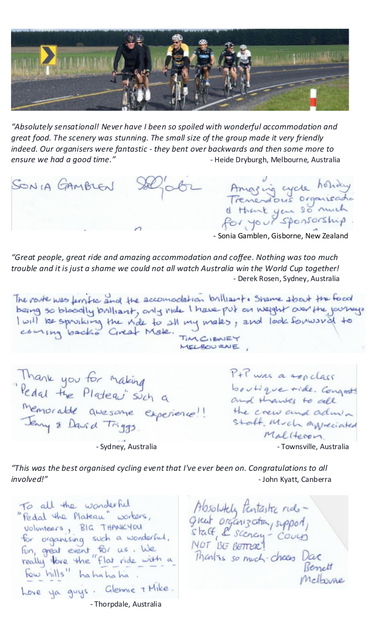 "Absolutely sensational! Never have I been so spoiled with wonderful accommodation and
great food. The scenery was stunning. The small size of the group made it very friendly
indeed. Our organisers were fantastic - they bent over backwards and then some more to
ensure we had a good time." - Heide Dryburgh, Melbourne, Australia
SONIA GAMBLEN
Amazing cycle holiday
Tremendous organisation
& thank you so much
for your sponsorship.
- Sonia Gamblen, Gisborne, New Zealand
"Great people, great ride and amazing accommodation and coffee. Nothing was too much
trouble and it is just a shame we could not all watch Australia win the World Cup together!
- Derek Rosen, Sydney, Australia
The route was terrific and the accomodation brilliant. Shame about the food
being so bloody brilliant, only ride I have put on weight over the journey.
I will be spruiking the ride to all my mates, and look forward to
coming back. Great Mate.
TIM GIBNEY
MELBOURNE,
Thank you for making
"Pedal the Plateau" such a
memorable awesome experience!!
Jenny & David Triggs.
- Sydney, Australia
P+P was a top class
boutique ride. Congrats
and thanks to all
the crew and admin
staff. Much appreciated
- Townsville, Australia
"This was the best organised cycling event that I've ever been on. Congratulations to all
involved!" - John Kyatt, Canberra
To all the wonderful
"Pedal the Plateau" workers,
volunteers, BIG THANKYOU
for organising such a wonderful,
fun, great event for us. We
really love the "flat ride with a
few hills" hahahaha.
Love ya guys. Glennie & Mike.
- Thorpdale, Australia
Absolutely fantastic ride -
great organization, support,
staff, & scenery - COULD
NOT BE BETTER!
Thanks so much - cheers Dave
Bennett
Melbourne